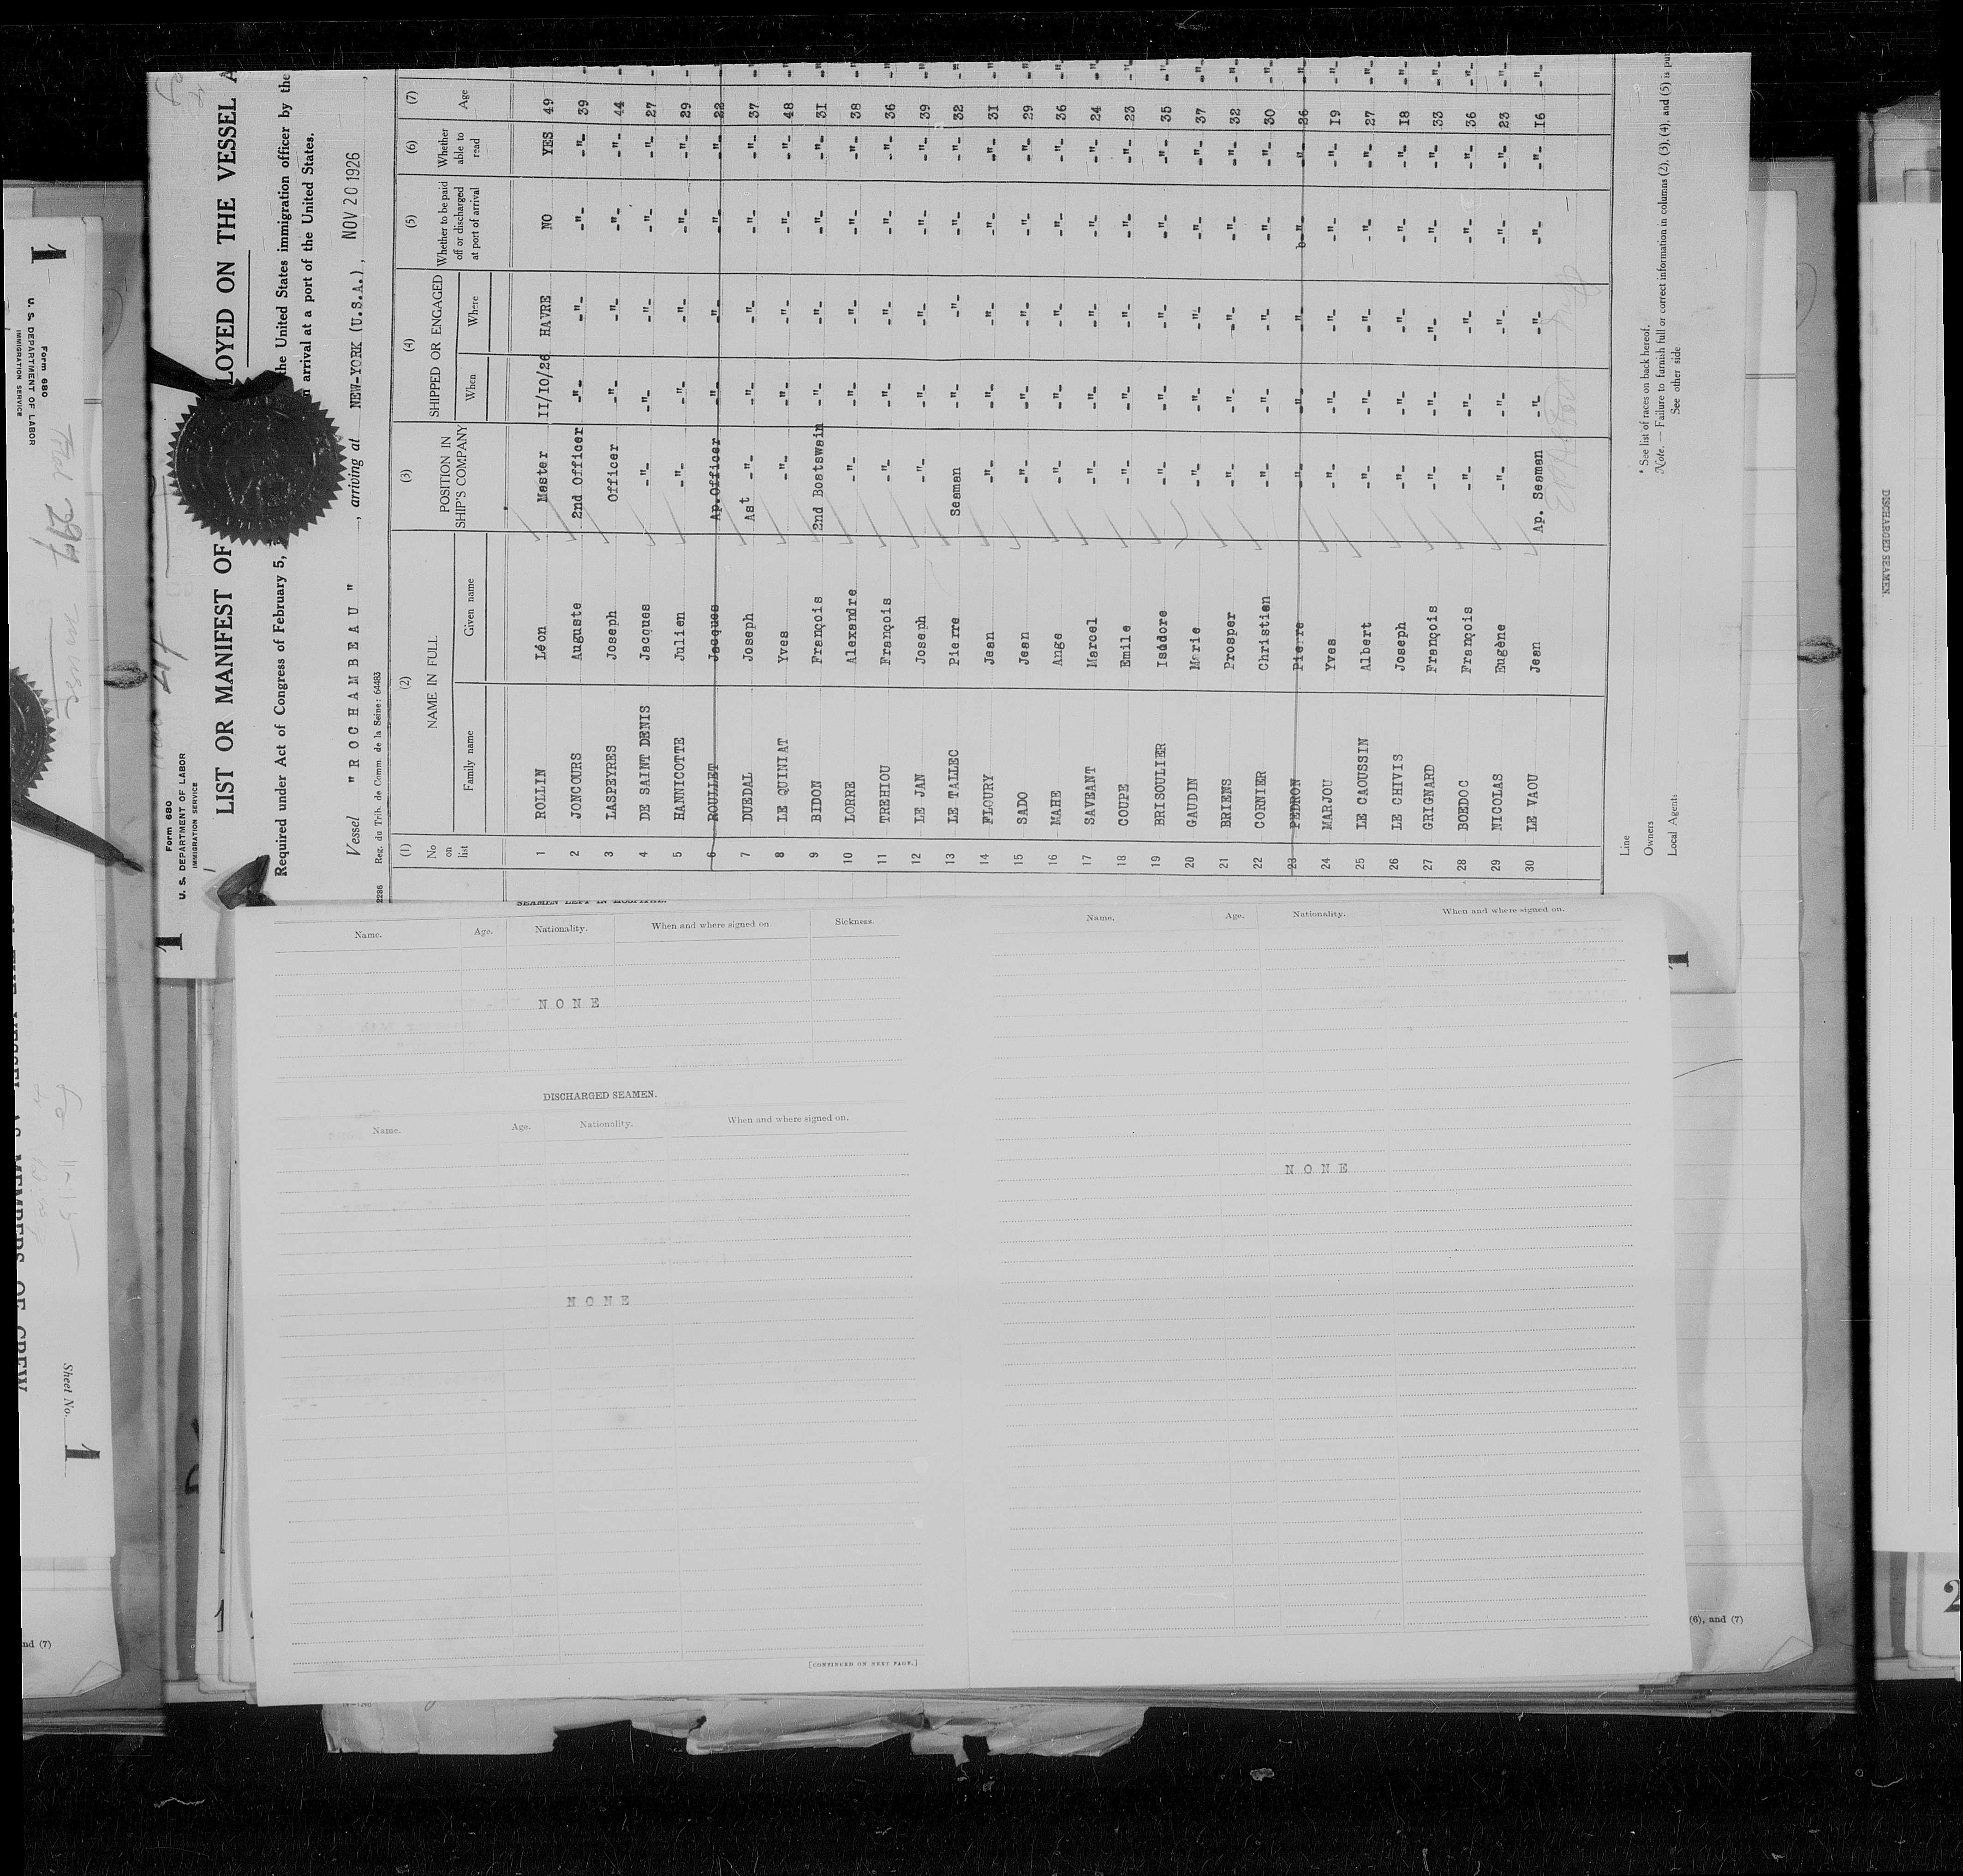 Form 680
U. S. DEPARTMENT OF LABOR
IMMIGRATION SERVICE
1
LIST OR MANIFEST OF LOYED ON THE VESSEL A
Required under Act of Congress of February 5, the United States immigration officer by the
arrival at a port of the United States.
Vessel "ROCHAMBEAU" , arriving at NEW-YORK (U.S.A.), NOV 20 1926
2286 Reg. du Trib. de Comm. de la Seine: 64483
(1) (2) (3) (4) (5) (6) (7)
No on list NAME IN FULL POSITION IN SHIP'S COMPANY SHIPPED OR ENGAGED Whether to be paid off or discharged at port of arrival Whether able to read Age
Family name Given name When Where
1 ROLLIN Léon Master II/IO/26 HAVRE NO YES 49
2 JONCOURS Auguste 2nd Officer -"- -"- -"- -"- 39
3 LASPEYRES Joseph Officer -"- -"- -"- -"- 44
4 DE SAINT DENIS Jacques -"- -"- -"- -"- -"- 27
5 HANNICOTTE Julien -"- -"- -"- -"- -"- 29
6 ROULLET Jacques Ap.Officer -"- -"- -"- -"- 22
7 DUEDAL Joseph Ast -"- -"- -"- -"- -"- 37
8 LE QUINIAT Yves -"- -"- -"- -"- -"- 48
9 BIDON François 2nd Boatswain -"- -"- -"- -"- 3I
10 LORRE Alexandre -"- -"- -"- -"- -"- 38
11 TREHIOU François -"- -"- -"- -"- -"- 36
12 LE JAN Joseph -"- -"- -"- -"- -"- 39
13 LE TALLEC Pierre Seaman -"- -"- -"- -"- 32
14 FLOURY Jean -"- -"- -"- -"- -"- 3I
15 SADO Jean -"- -"- -"- -"- -"- 29
16 MAHE Ange -"- -"- -"- -"- -"- 36
17 SAVEANT Marcel -"- -"- -"- -"- -"- 24
18 COUPE Emile -"- -"- -"- -"- -"- 23
19 BRISOULIER Isidore -"- -"- -"- -"- -"- 35
20 GAUDIN Marie -"- -"- -"- -"- -"- 37
21 BRIENS Prosper -"- -"- -"- -"- -"- 32
22 CORNIER Christien -"- -"- -"- -"- -"- 30
23 PEDRON Pierre -"- -"- -"- -"- -"- 26
24 MARJOU Yves -"- -"- -"- -"- -"- I9
25 LE CAOUSSIN Albert -"- -"- -"- -"- -"- 27
26 LE CHIVIS Joseph -"- -"- -"- -"- -"- I8
27 GRIGNARD François -"- -"- -"- -"- -"- 33
28 BOEDOC François -"- -"- -"- -"- -"- 36
29 NICOLAS Eugène -"- -"- -"- -"- -"- 23
30 LE VAOU Jean Ap. Seaman -"- -"- -"- -"- I6
Line
Owners
Local Agents
* See list of races on back hereof.
Note. — Failure to furnish full or correct information in columns (2), (3), (4), and (5) is pun
See other side
SEAMEN LEFT IN HOSPITAL.
Name. Age. Nationality. When and where signed on. Sickness.
NONE
DISCHARGED SEAMEN.
Name. Age. Nationality. When and where signed on.
NONE
(CONTINUED ON NEXT PAGE.)
Name. Age. Nationality. When and where signed on.
NONE
1
(6), and (7)
1
Form 680
U. S. DEPARTMENT OF LABOR
IMMIGRATION SERVICE
MEMBERS OF CREW
Sheet No. 1
nd (7)
DISCHARGED SEAMEN.
2